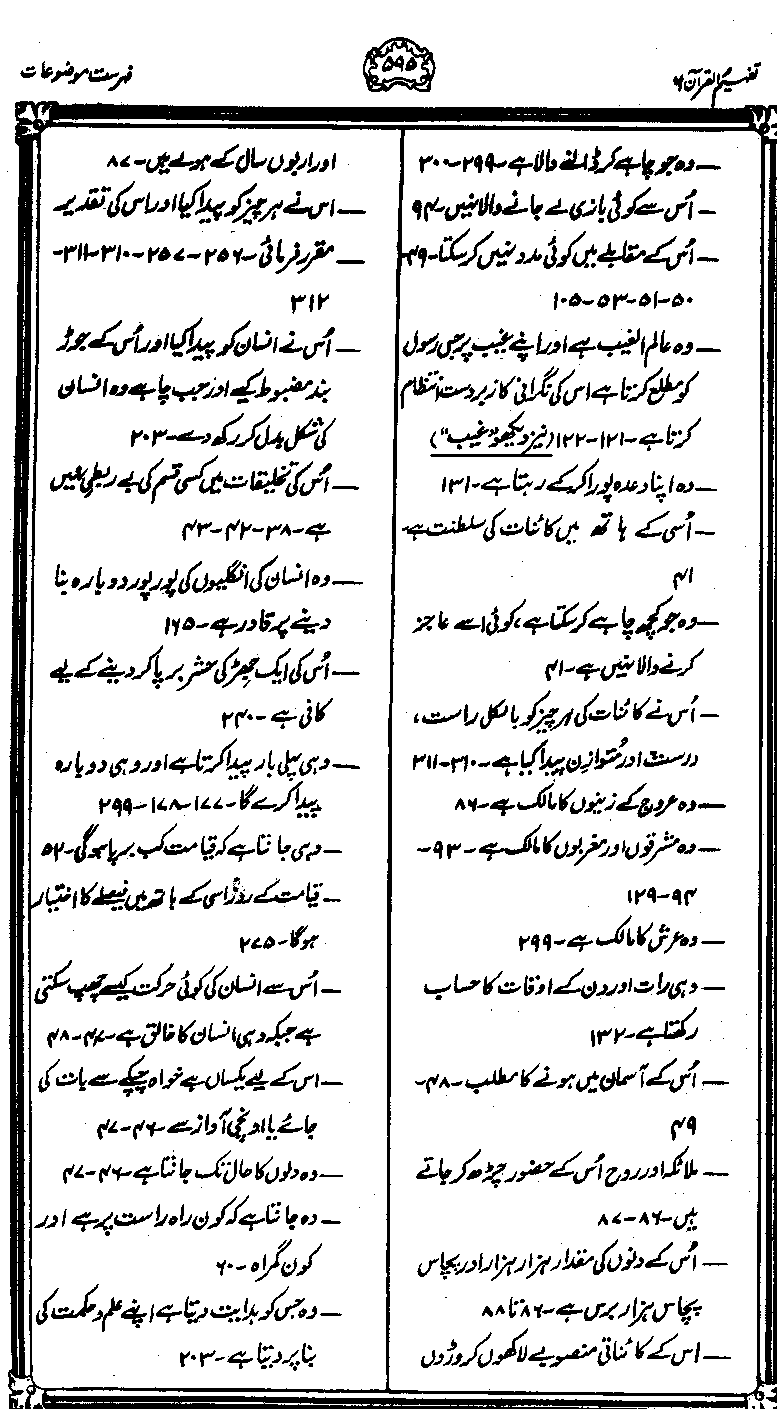 تفہیم القرآن ۶
۵۹۵
فہرست موضوعات
— وہ جو چاہے کر ڈالنے والا ہے۔ ۲۹۹۔۳۰۰
— اُس سے کوئی بازی لے جانے والا نہیں۔ ۹۴
— اُس کے مقابلے میں کوئی مدد نہیں کر سکتا۔ ۴۹۔
۵۰۔۵۱۔۵۳۔۱۰۵
— وہ عالم الغیب ہے اور اپنے غیب پر جس رسول
کو مطلع کرتا ہے اس کی نگرانی کا زبردست انتظام
کرتا ہے۔ ۱۲۱۔۱۲۲ (نیز دیکھو "غیب")
— وہ اپنا وعدہ پورا کر کے رہتا ہے۔ ۱۳۱
— اُسی کے ہاتھ میں کائنات کی سلطنت ہے۔
۴۱
— وہ جو کچھ چاہے کر سکتا ہے، کوئی اسے عاجز
کرنے والا نہیں ہے۔ ۴۱
— اُس نے کائنات کی ہر چیز کو بالکل راست،
درست اور متوازن پیدا کیا ہے۔ ۳۱۰۔۳۱۱
— وہ عروج کے زینوں کا مالک ہے۔ ۸۶
— وہ مشرقوں اور مغربوں کا مالک ہے۔ ۹۳۔
۹۴۔۱۲۹
— وہ عرش کا مالک ہے۔ ۲۹۹
— وہی رات اور دن کے اوقات کا حساب
رکھتا ہے۔ ۱۳۲
— اُس کے آسمان میں ہونے کا مطلب۔ ۴۸۔
۴۹
— ملائکہ اور روح اُس کے حضور چڑھ کر جاتے
ہیں۔ ۸۶۔۸۷
— اُس کے دنوں کی مقدار ہزار ہزار اور پچاس
پچاس ہزار برس ہے۔ ۸۶ تا ۸۸
— اس کے کائناتی منصوبے لاکھوں کروڑوں
اور اربوں سال کے ہوتے ہیں۔ ۸۷
— اس نے ہر چیز کو پیدا کیا اور اس کی تقدیر
— مقرر فرمائی۔ ۲۵۶۔۲۵۷۔۳۱۰۔۳۱۱۔
۳۱۲
— اُس نے انسان کو پیدا کیا اور اُس کے جوڑ
بند مضبوط کیے اور جب چاہے وہ انسان
کی شکل بدل کر رکھ دے۔ ۲۰۳
— اُس کی تخلیقات میں کسی قسم کی بے ربطی نہیں
ہے۔ ۳۸۔۴۲۔۴۳
— وہ انسان کی انگلیوں کی پور پور دوبارہ بنا
دینے پر قادر ہے۔ ۱۶۵
— اُس کی ایک جھڑکی حشر برپا کر دینے کے لیے
کافی ہے۔ ۲۴۰
— وہی پہلی بار پیدا کرتا ہے اور وہی دوبارہ
پیدا کرے گا۔ ۱۷۷۔۱۷۸۔۲۹۹
— وہی جانتا ہے کہ قیامت کب برپا ہوگی۔ ۵۲
— قیامت کے روز اُسی کے ہاتھ میں فیصلے کا اختیار
ہوگا۔ ۲۷۵
— اُس سے انسان کی کوئی حرکت کیسے چھپ سکتی
ہے جبکہ وہی انسان کا خالق ہے۔ ۴۷۔۴۸
— اس کے لیے یکساں ہے خواہ چپکے سے بات کی
جائے یا اونچی آواز سے۔ ۴۶۔۴۷
— وہ دلوں کا حال تک جانتا ہے۔ ۴۶۔۴۷
— وہ جانتا ہے کہ کون راہ راست پر ہے اور
کون گمراہ۔ ۶۰
— وہ جس کو ہدایت دیتا ہے اپنے علم و حکمت کی
بنا پر دیتا ہے۔ ۲۰۳